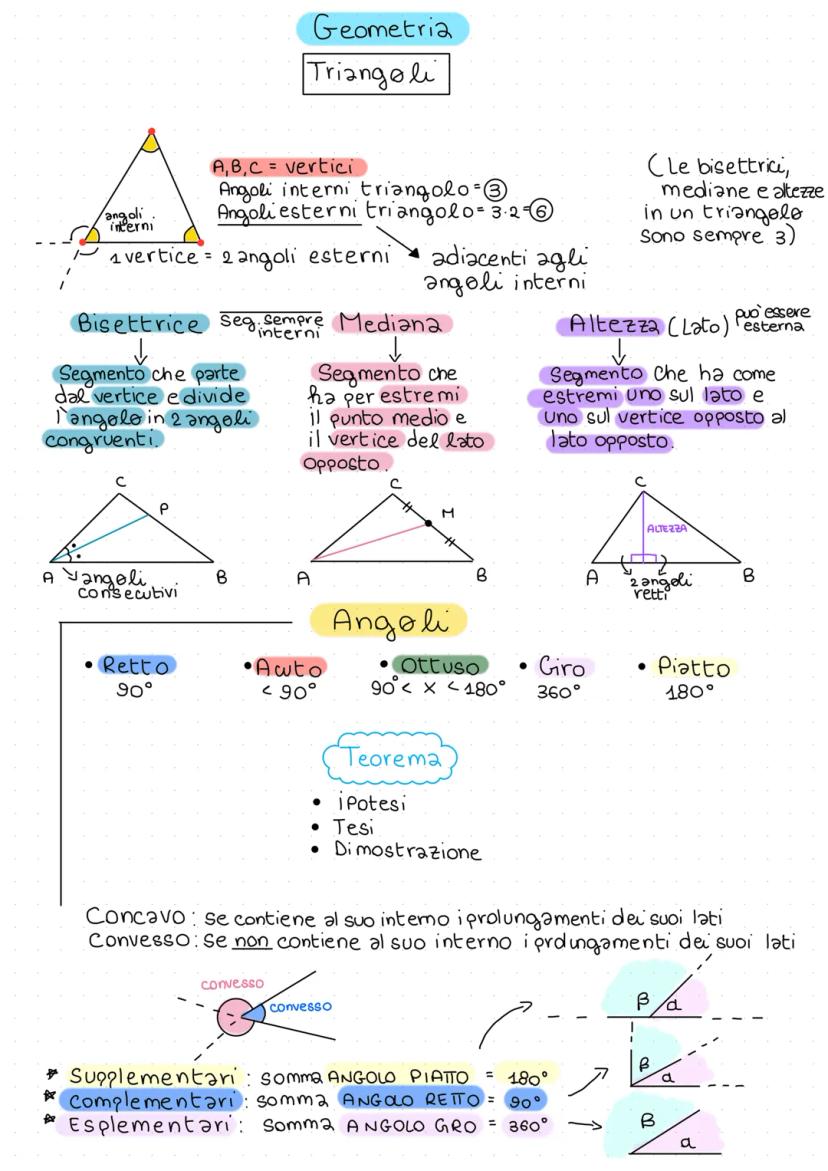 Geometria
Triangoli
A,B,C = vertici
Angoli interni triangolo = 3
Angoli esterni triangolo = 3·2 = 6
angoli
interni
1 vertice = 2 angoli esterni
adiacenti agli
angoli interni
(Le bisettrici,
mediane e altezze
in un triangolo
sono sempre 3)
Bisettrice
Seg. sempre
interni
Mediana
Altezza (Lato) può essere
esterna
Segmento che parte
dal vertice e divide
l'angolo in 2 angoli
congruenti.
Segmento che
ha per estremi
il punto medio e
il vertice del lato
opposto.
Segmento che ha come
estremi uno sul lato e
uno sul vertice opposto al
lato opposto.
C
P
A
B
angoli
consecutivi
C
M
A
B
C
ALTEZZA
A
B
2 angoli
retti
Angoli
• Retto
90°
• Acuto
< 90°
• Ottuso
90° < x < 180°
• Giro
360°
• Piatto
180°
Teorema
• ipotesi
• Tesi
• Dimostrazione
Concavo : Se contiene al suo interno i prolungamenti dei suoi lati
Convesso : Se non contiene al suo interno i prolungamenti dei suoi lati
convesso
convesso
β
a
β
a
β
a
* Supplementari : somma ANGOLO PIATTO = 180°
* Complementari : somma ANGOLO RETTO = 90°
* Esplementari : somma ANGOLO GIRO = 360°